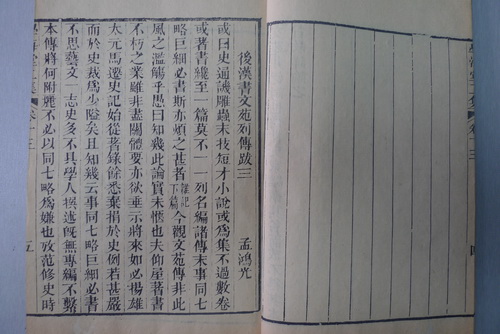 後漢書文苑列傳跋三
孟鴻光
或曰史通譏雕蟲末技短才小說或爲集不過數卷
或著書纔至一篇莫不一一列名編諸傳末事同七
略巨細必書斯亦煩之甚者雜記下篇今觀文苑傳非此
風之濫觴乎愚曰知幾此論實未愜也夫仰屋著書
不朽之業雖非盡關體要亦欲垂示將來如必揚雄
太元馬遷史記始從著錄餘悉棄捐於史例若甚嚴
而於史裁爲少隘矣且知幾云事同七略巨細必書
不思藝文一志史多不具學人撰述旣無專編不繫
本傳將何附麗不必以同七略爲嫌也故范修史時
卷十三
五